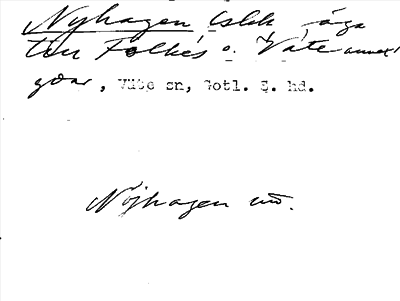 Nyhagen Lslk äga
till Folkes o. Väte annex
gdar, Väte sn, Gotl. S. hd.
Nöjhagen uö.